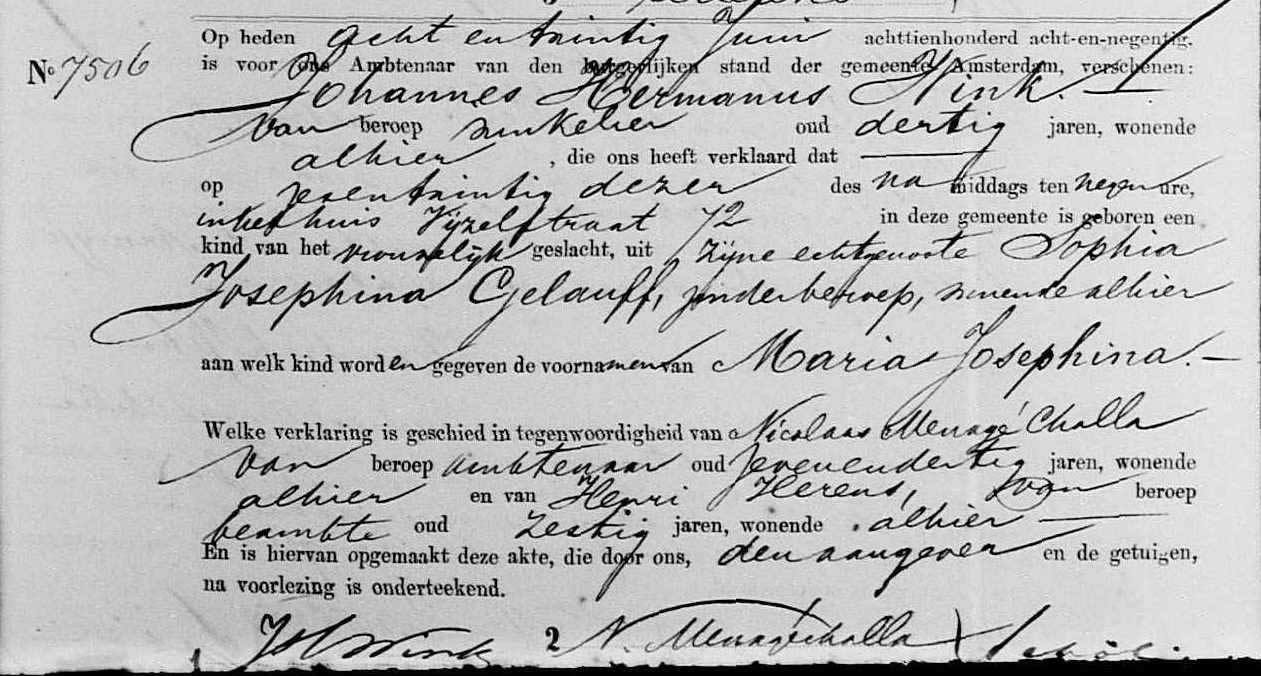 Op heden acht en twintig Juni achttienhonderd acht-en-negentig,
No 7506
is voor Ons Ambtenaar van den burgerlijken stand der gemeente Amsterdam, verschenen:
Johannes Hermanus Wink.
van beroep winkelier oud dertig jaren, wonende
alhier, die ons heeft verklaard dat
op zesentwintig dezer des na middags ten negen ure,
in het huis Vijzelstraat 72 in deze gemeente is geboren een
kind van het vrouwelijk geslacht, uit zijne echtgenoote Sophia
Josephina Gelauff, zonder beroep, wonende alhier
aan welk kind worden gegeven de voornamen van Maria Josephina.
Welke verklaring is geschied in tegenwoordigheid van Nicolaas Menagé Challa
van beroep ambtenaar oud zevenendertig jaren, wonende
alhier en van Henri Herens, van beroep
beambte oud zestig jaren, wonende alhier
En is hiervan opgemaakt deze akte, die door ons, den aangever en de getuigen,
na voorlezing is onderteekend.
JHWink 2 N. Menagé Challa